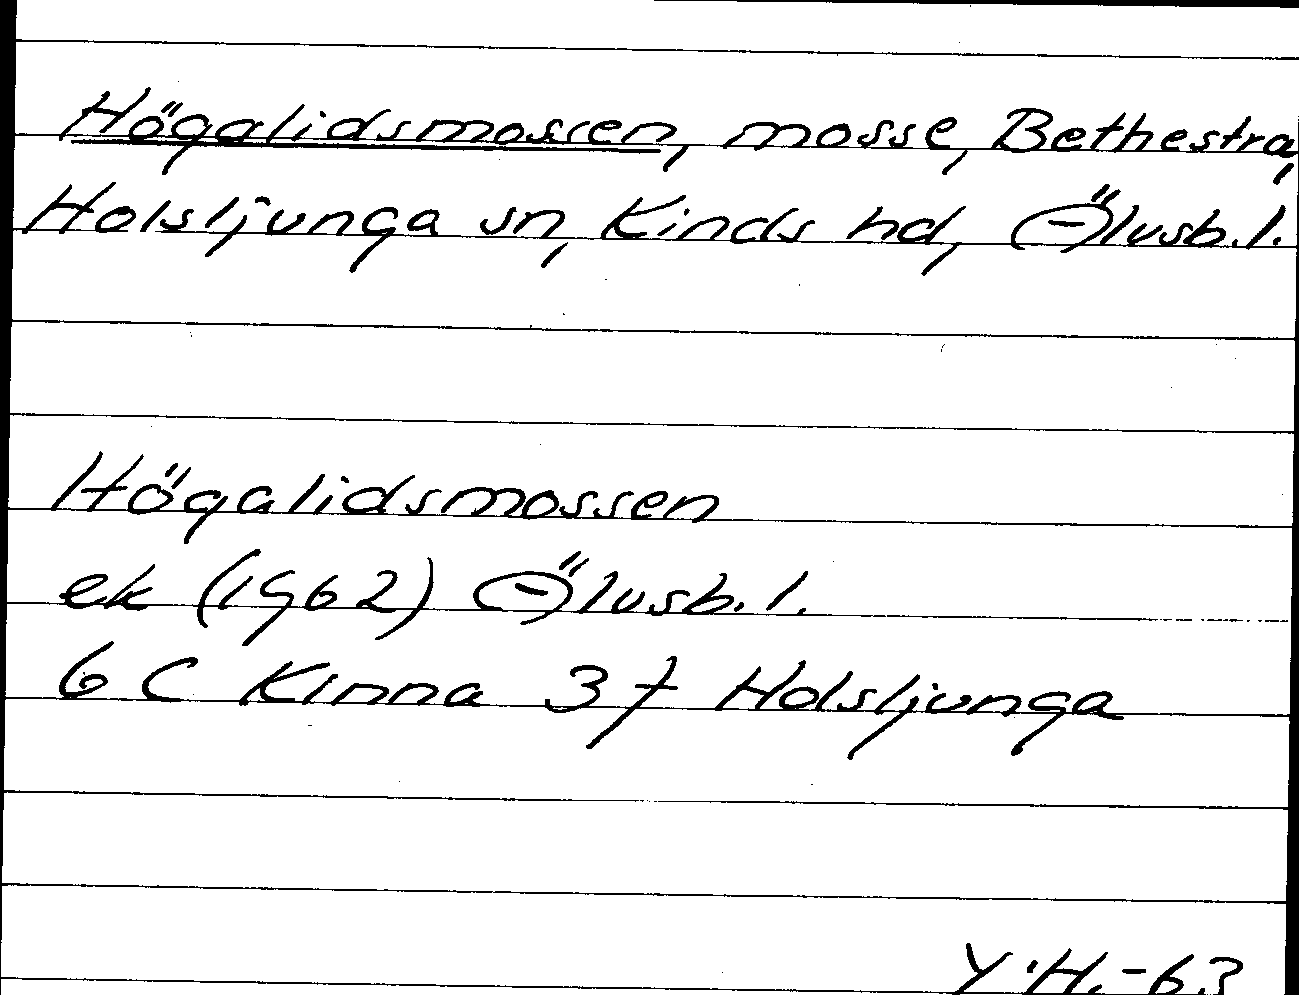 Högalidsmossen, mosse, Bethestra,
Holsljunga sn, Kinds hd, Älvsb. l.
Högalidsmossen
ek (1962) Älvsb. l.
6 C Kinna 3 f Holsljunga
Y. H. -63